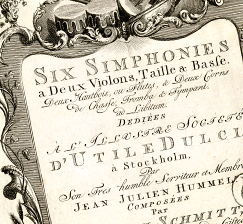 SIX SIMPHONIES
a Deux Violons, Taille & Basse.
Deux Hautbois, ou Flutes, & Deux Corns
de Chasse, Tromba & Tympani.
ad Libitum.
DEDIÉES
À L'ILLUSTRE SOCIETÉ
D'UTILE DULCI
à Stockholm.
Par
Son Tres humble Serviteur a Membre
JEAN JULIEN HUMMEL
COMPOSÉES
Par
SCHMITT